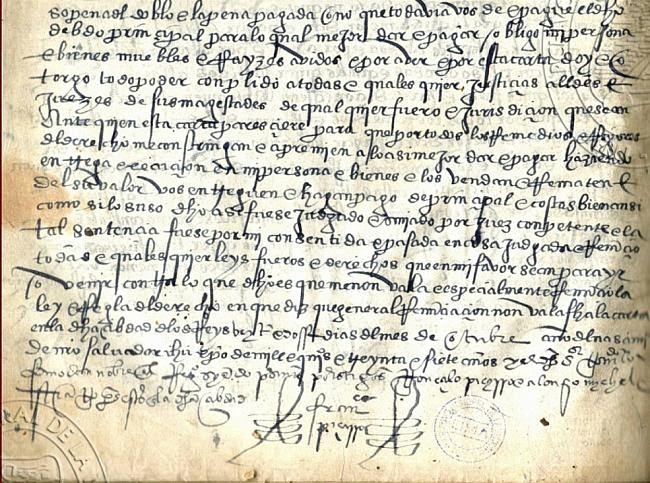 so pena del doblo e la pena pagada o no que todavia vos de e pague el dho
debdo prinçipal para lo qual mejor dar e pagar obligo mi persona
e bienes muebles e rrayzes avidos e por aver e por esta carta doy e o
torgo todo poder conplido a todas e qualesquier justiçias alldes e
juezes de sus magestades de qualquier fuero e juridiçion que sean
ante quien esta carta paresçiere para que por todos los rremedios e rrigores
del derecho me constringan e apremien a lo asi mejor dar e pagar haziendo
entrega e execuçion en mi persona e bienes e los vendan e rrematen e
de su valor vos entreguen e hagan pago de prinçipal e costas bien ansi
como si lo suso dho asi fuese juzgado e sentençiado por juez conpetente e la
tal sentençia fuese por mi consentida e pasada en cosa juzgada e rrenunçio
todas e qualesquier leys fueros e derechos que en mi favor sean para yr
o venir contra lo que dho es que me non vala e espeçialmente rrenunçio la
ley e rregla del derecho en que diz que general rrenunçiaçion non vala fecha la carta
en la dha çibdad de los rreys dias del mes de otubre año del nasçimi
de nro salvador ihu xpo de mill e quis e treynta e siete años
gonçalo piçarro alonso
franco
piçarro